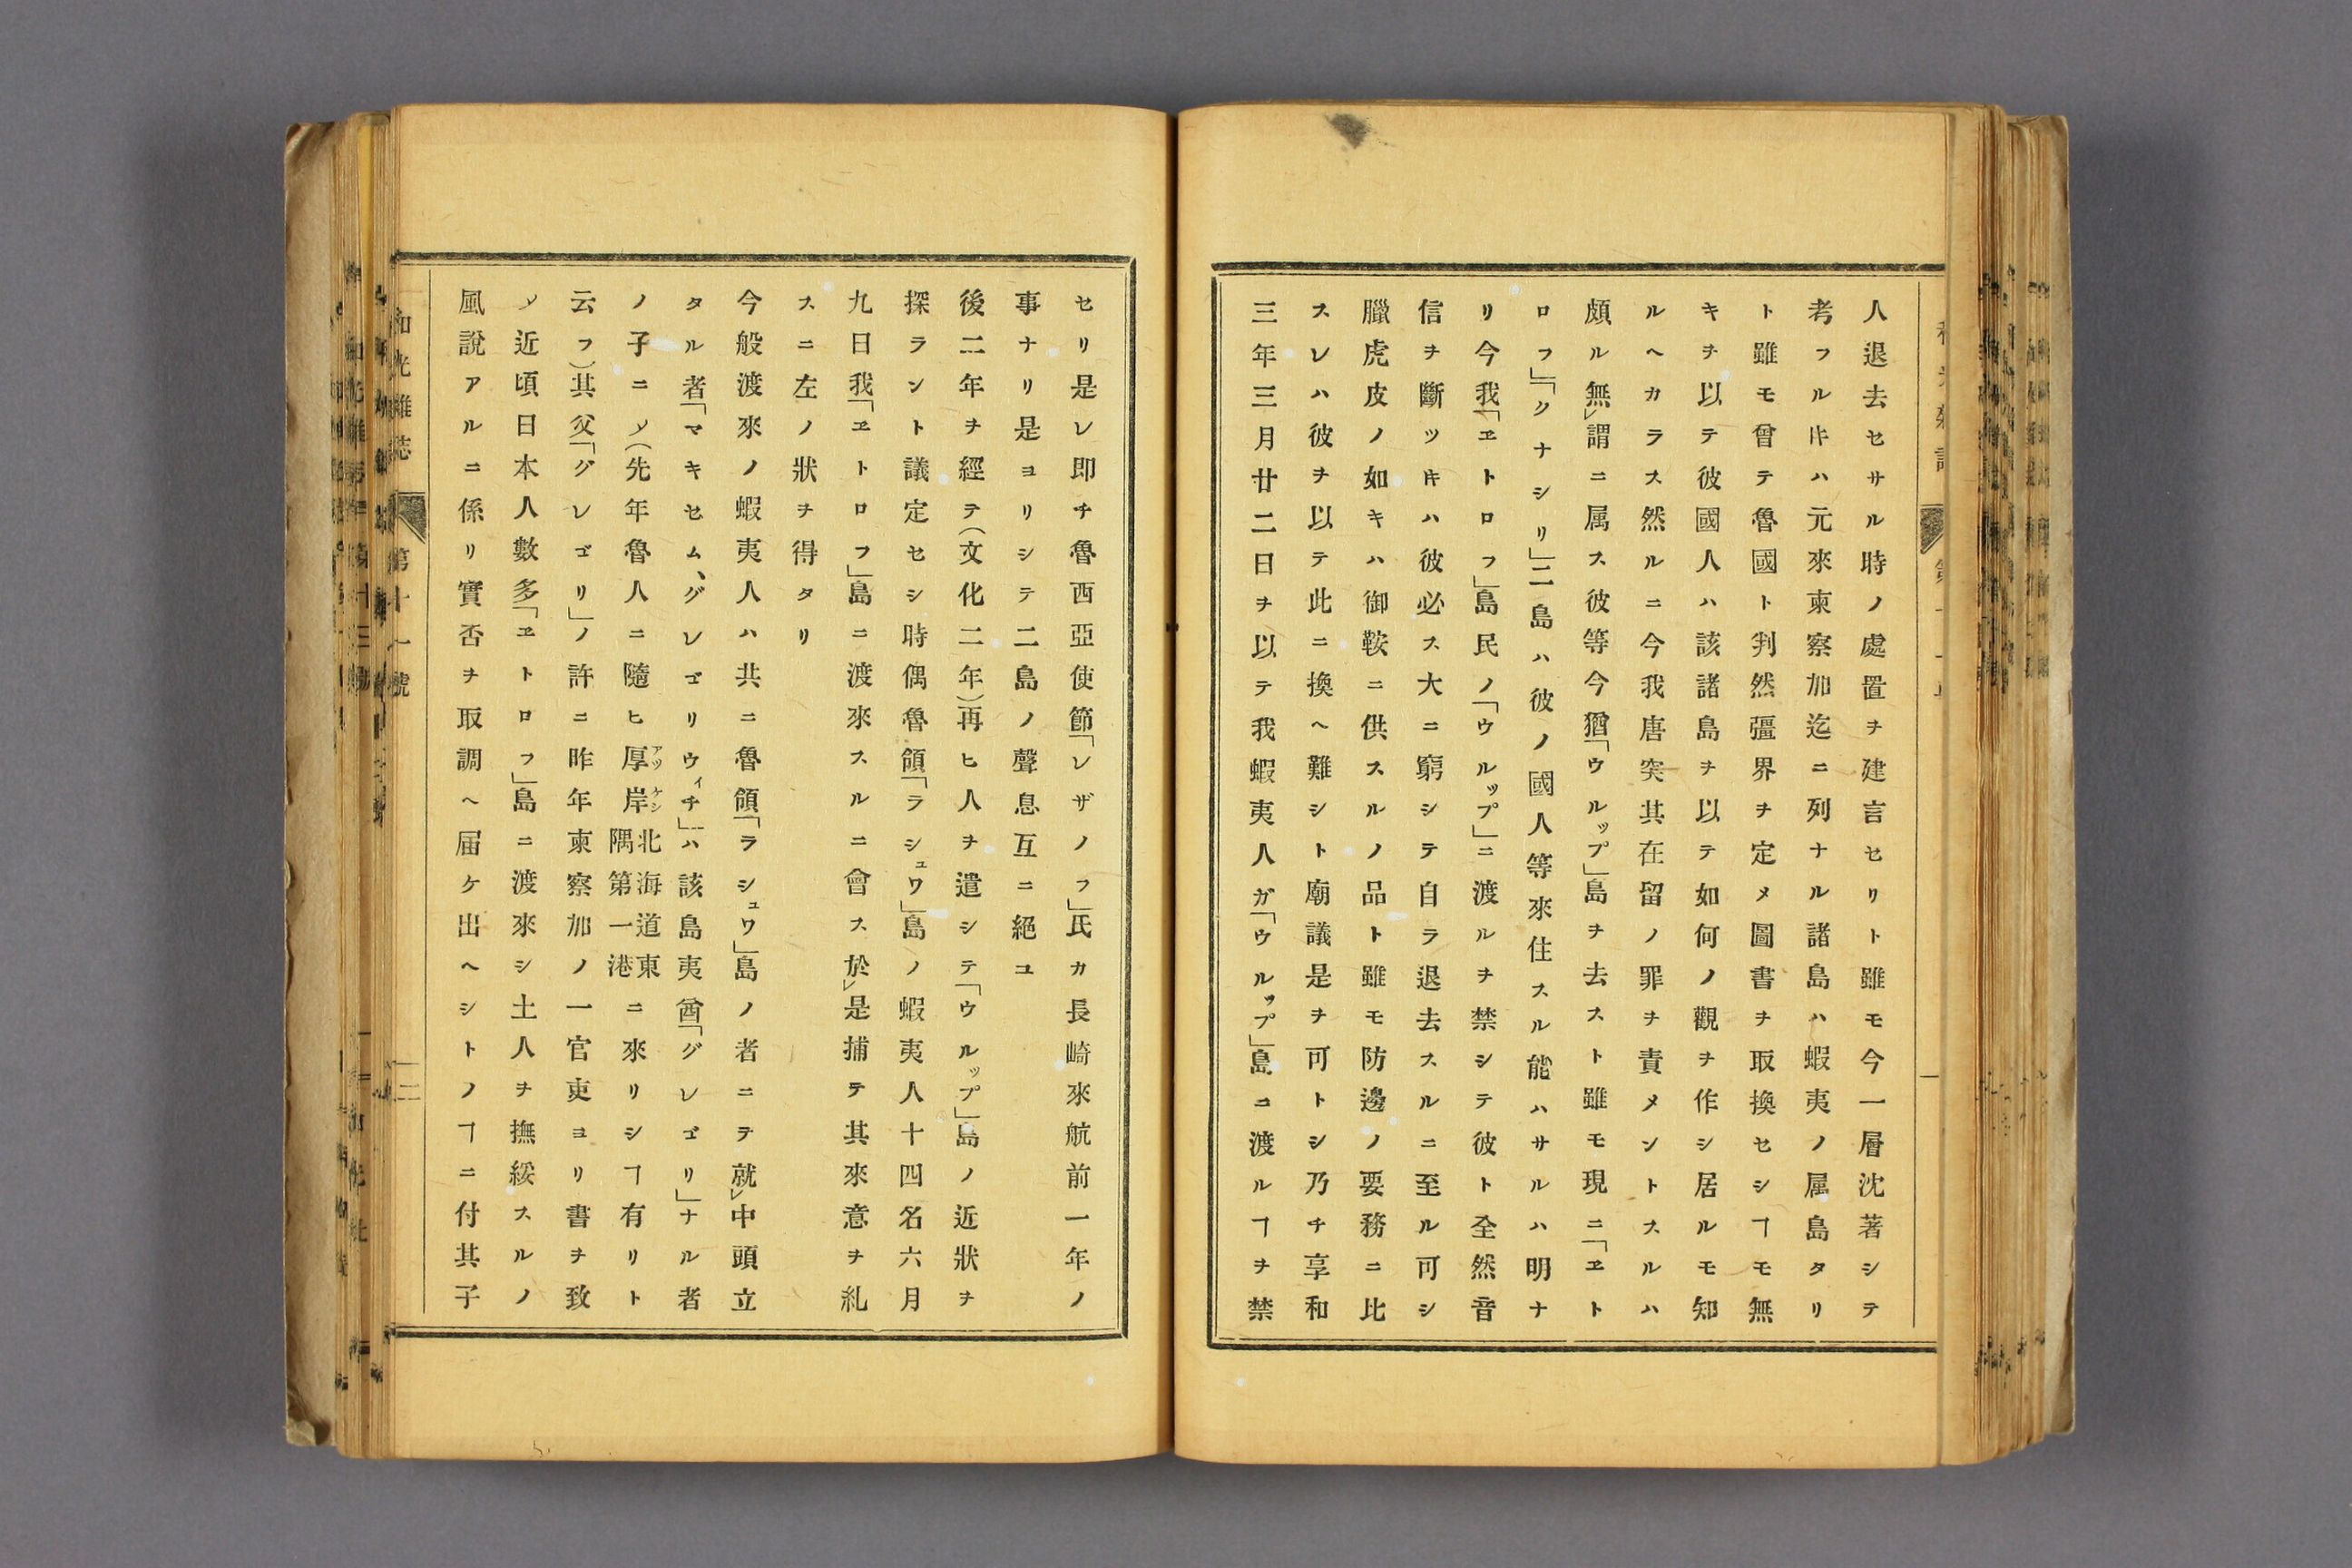 人退去セサル時ノ處置ヲ建言セリト雖モ今一層沈著シテ
考フル𪜈ハ元來柬察加迄ニ列ナル諸島ハ蝦夷ノ属島タリ
ト雖モ曾テ魯國ト判然彊界ヲ定メ圖書ヲ取換セシヿモ無
キヲ以テ彼國人ハ該諸島ヲ以テ如何ノ觀ヲ作シ居ルモ知
ルヘカラス然ルニ今我唐突其在留ノ罪ヲ責メントスルハ
頗ル無謂ニ属ス彼等今猶「ウルップ」島ヲ去スト雖モ現ニ「ヱト
ロフ」「クナシリ」二島ハ彼ノ國人等來住スル能ハサルハ明ナ
リ今我「ヱトロフ」島民ノ「ウルップ」ニ渡ルヲ禁シテ彼ト全然音
信ヲ斷ツ𪜈ハ彼必ス大ニ窮シテ自ラ退去スルニ至ル可シ
臘虎皮ノ如キハ御鞍ニ供スルノ品ト雖モ防邊ノ要務ニ比
スレハ彼ヲ以テ此ニ換ヘ難シト廟議是ヲ可トシ乃チ享和
三年三月廿二日ヲ以テ我蝦夷人ガ「ウルップ」島ニ渡ルヿヲ禁
セリ是レ即チ魯西亞使節「レザノフ」氏カ長崎來航前一年ノ
事ナリ是ヨリシテ二島ノ聲息互ニ絕ユ
後二年ヲ經テ(文化二年)再ヒ人ヲ遣シテ「ウルップ」島ノ近狀ヲ
探ラント議定セシ時偶魯領「ラシュワ」島ノ蝦夷人十四名六月
九日我「ヱトロフ」島ニ渡來スルニ會ス於是捕テ其來意ヲ糺
スニ左ノ狀ヲ得タリ
今般渡來ノ蝦夷人ハ共ニ魯領「ラシュワ」島ノ者ニテ就中頭立
タル者「マキセム、グレゴリウィチ」ハ該島夷酋「グレゴリ」ナル者
ノ子ニソ(先年魯人ニ隨ヒ厚岸北海道東隅第一港ニ來リシヿ有リト
云フ)其父「グレゴリ」ノ許ニ昨年柬察加ノ一官吏ヨリ書ヲ致
ソ近頃日本人數多「ヱトロフ」島ニ渡來シ土人ヲ撫綏スルノ
風說アルニ係リ實否ヲ取調ヘ届ケ出ヘシトノヿニ付其子
和光雜誌 第十一號 二